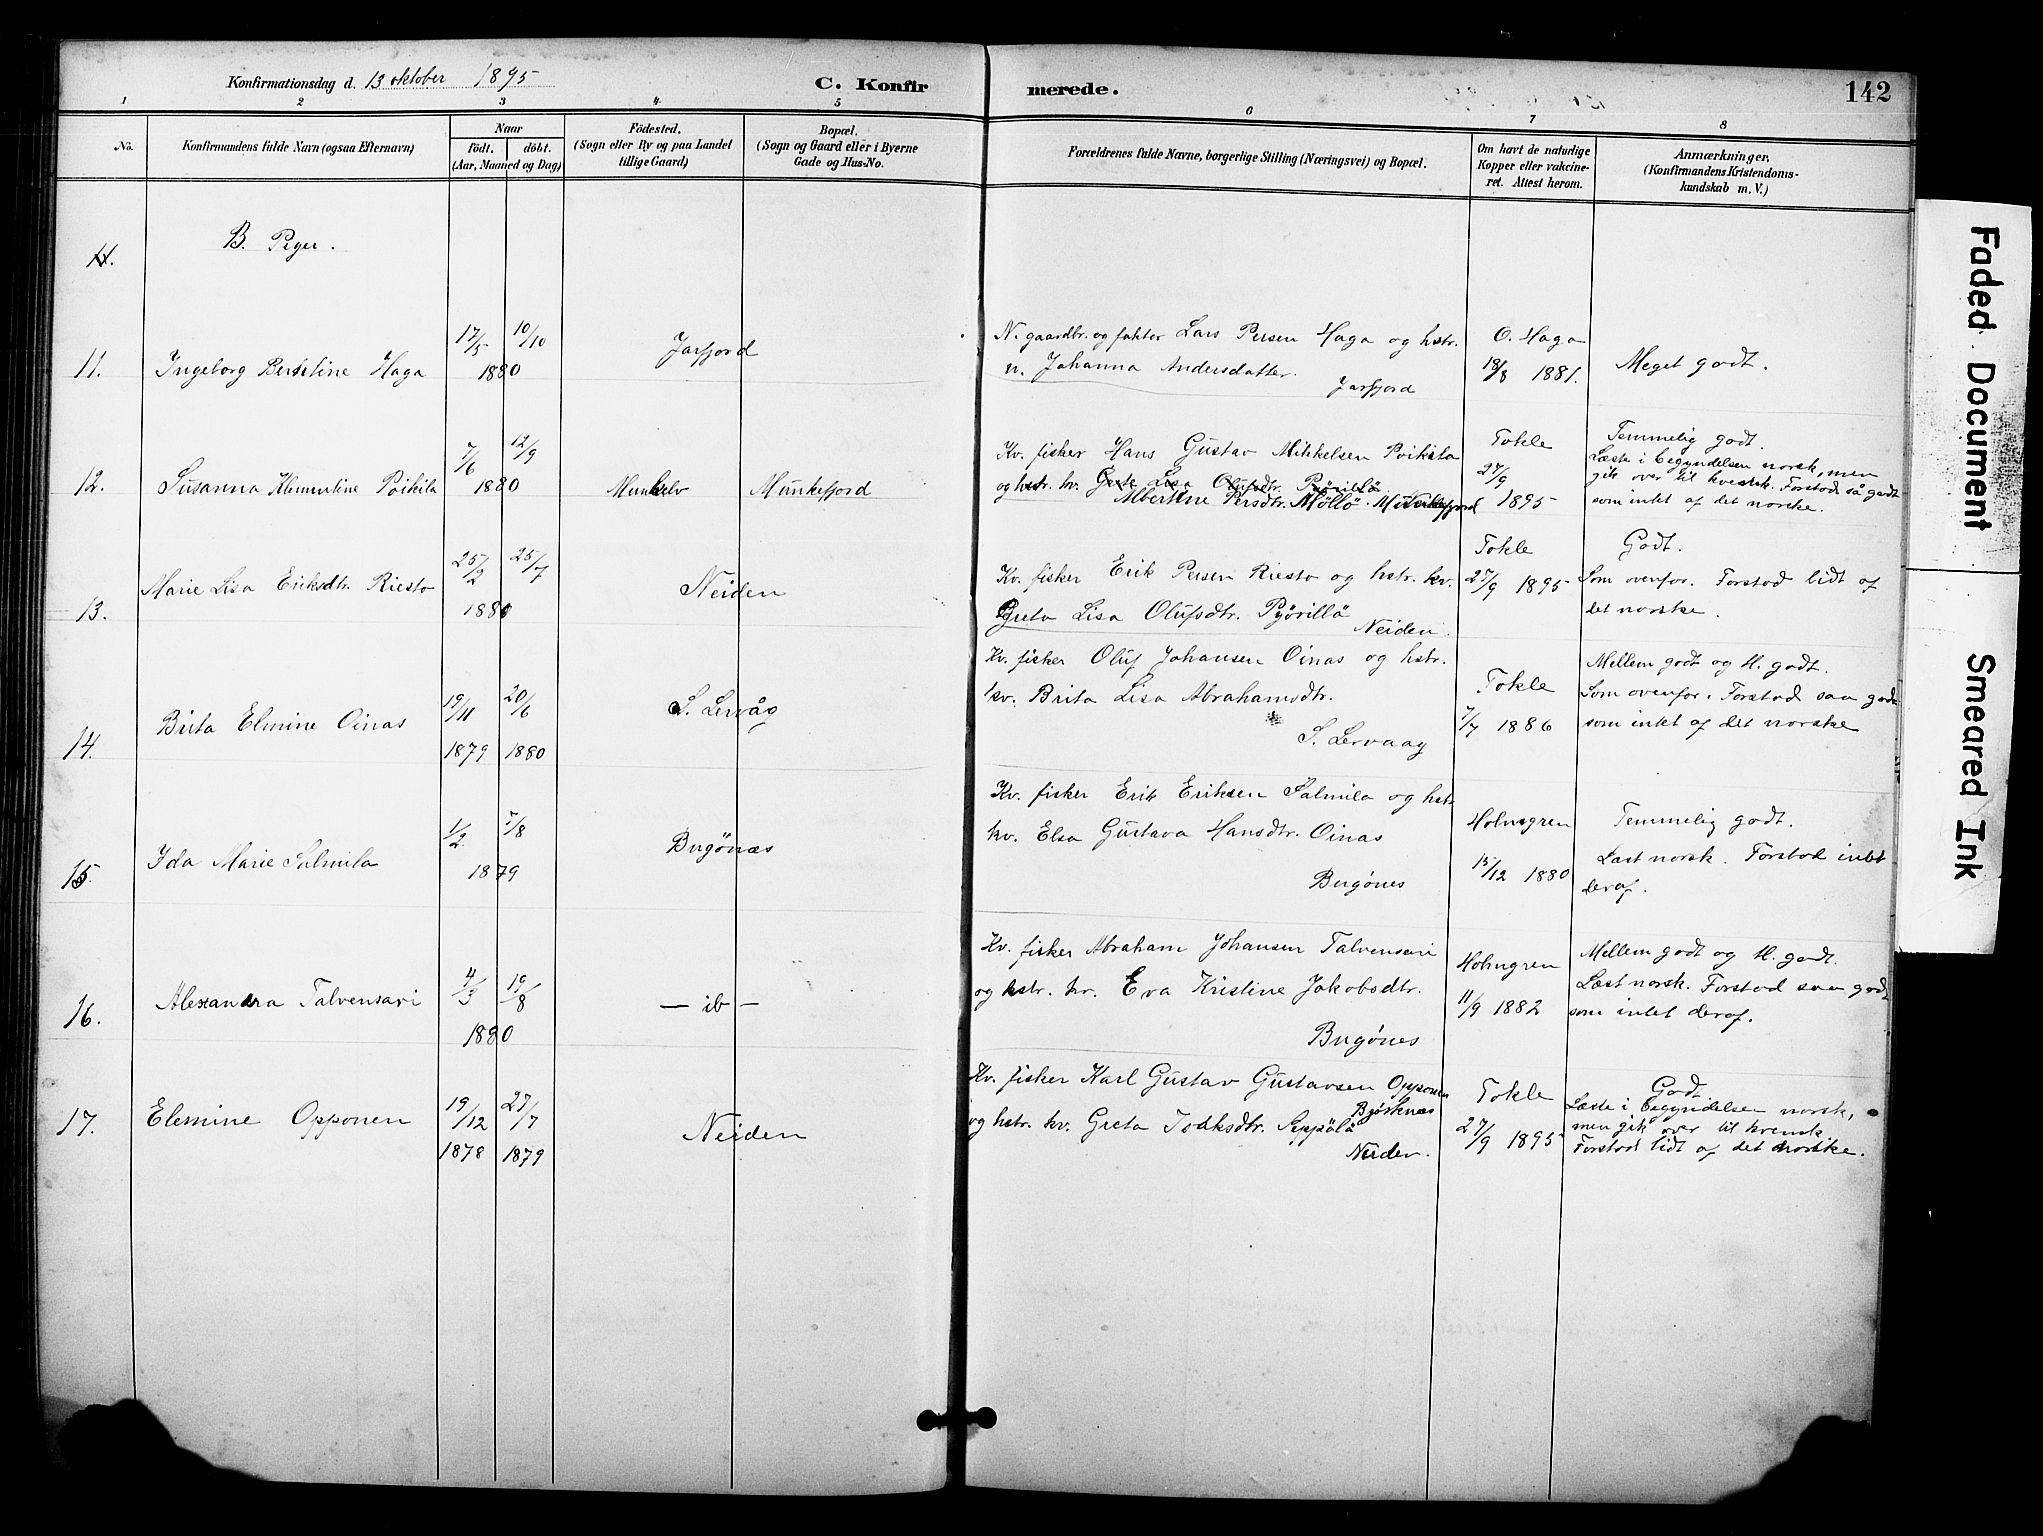 Konfirmationsdag d. 13 oktober 1895
C. Konfirmerede.
142
1 2 3 4 5 6 7 8
No.
Konfirmandens fulde Navn (ogsaa Efternavn)
Naar
födt. döbt.
(Aar, Maaned og Dag)
Födested.
(Sogn eller By og paa Landet
tillige Gaard)
Bopæl.
(Sogn og Gaard eller i Byerne
Gade og Hus-No.
Forældrenes fulde Navne, borgerlige Stilling (Næringsvei) og Bopæl.
Om havt de naturlige
Kopper eller vakcine-
ret. Attest herom.
Anmærkninger,
(Konfirmandens Kristendoms-
kundskab m. V.)
B. Piger.
11.
11. Ingeborg Berntine Haga
17/5 10/10
1880
Jarfjord
N. gaardbr. og fakter Lars Persen Haga og hstr.
n. Johanna Andersdatter.
Jarfjord
O. Haga
18/8 1881.
Meget godt.
12. Susanna Klementine Poikila
7/6 12/9
1880
Munkelv
Munkefjord
Kv. fisker Hans Gustav Mikkelsen Poikila
og hstr. kv. Greta Lisa Olufsdtr. Pyörillä
Albertine Persdtr. Möllö. Munkefjord
Tokle
27/9
1895
Temmelig godt.
Læste i begyndelsen norsk, men
gik over til kvensk. Forstod så godt
som intet af det norske.
13. Marie Lisa Eriksdtr. Riesto
25/2 25/7
1880
Neiden
Kv. fisker Erik Persen Riesto og hstr. kv.
Greta Lisa Olufsdtr. Pyörillä
Neiden.
Tokle
27/9 1895
Godt.
Som ovenfor. Forstod lidt af
det norske.
14. Brita Elmine Oinas
19/11 20/6
1879 1880
S. Lervåg
Kv. fisker Oluf Johansen Oinas og hstr.
kv. Brita Lisa Abrahamsdtr.
S. Lervaag
Tokle
7/7 1886
Mellem godt og M. godt.
Som ovenfor. Forstod saa godt
som intet af det norske
15. Ida Marie Salmila
1/2 7/8
1879
Bugönæs
Kv. fisker Erik Eriksen Salmila og hstr
kv. Elsa Gustava Hansdtr. Oinas
Bugönes
Holmgren
15/12 1880
Temmelig godt.
Læst norsk. Forstod intet
deraf.
16. Alexandra Talvensari
4/3 19/8
1880
— ib —
Kv. fisker Abraham Johansen Talvensari
og hstr. kv. Eva Kristine Jakobsdtr.
Bugönes
Holmgren
11/9 1882
Mellem godt og M. godt.
Læst norsk. Forstod saa godt
som intet deraf.
17. Elemine Opponen
19/12 27/7
1878 1879
Neiden
Kv. fisker Karl Gustav Gustavsen Opponen
Björknes
og hstr. kv. Greta Isaksdtr. Seppälä
Neiden.
Tokle
27/9 1895
Godt
Læste i begyndelsen norsk,
men gik over til kvensk
Forstod lidt af det norske.
Faded Document
Smeared Ink